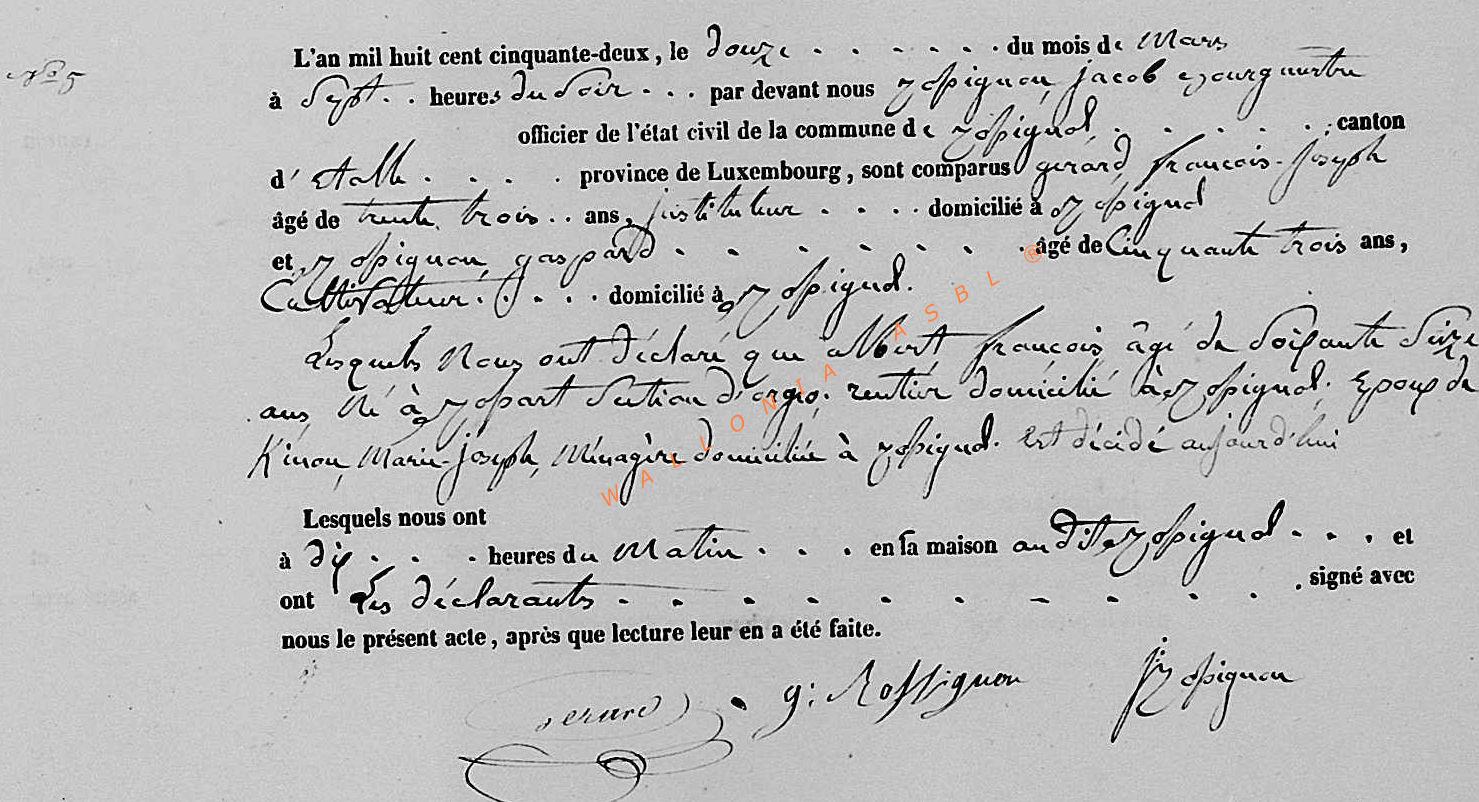 N° 5
L'an mil huit cent cinquante-deux, le douze . . . . . . du mois de Mars
à Sept . . heures du Soir . . . par devant nous Rossignon, jacob Bourgmestre
officier de l'état civil de la commune de Rossignol . . . . . ; canton
d' Etalle . . . . province de Luxembourg, sont comparus gerard, françois-joseph
âgé de trente trois . . ans, instituteur . . . . domicilié à Rossignol
et Rossignon, gaspard . . . . . . . . âgé de Cinquante trois ans,
Cultivateur . . . . . domicilié à Rossignol.
Lesquels Nous ont déclaré que albert, françois, âgé de Soixante Seize
ans, Né à Rossart Section d'orgeo, rentier domicilié à Rossignol, Epoux de
Kinon, Marie-joseph, Ménagère domiciliée à Rossignol. Est décédé aujourd'hui
Lesquels nous ont
à dix . . . . heures du Matin . . . en sa maison au dit Rossignol . . . et
ont Les déclarants . . . . . . . . . . signé avec
nous le présent acte, après que lecture leur en a été faite.
gerard g: Rossignon J Rossignon
WALLONIA ASBL ®